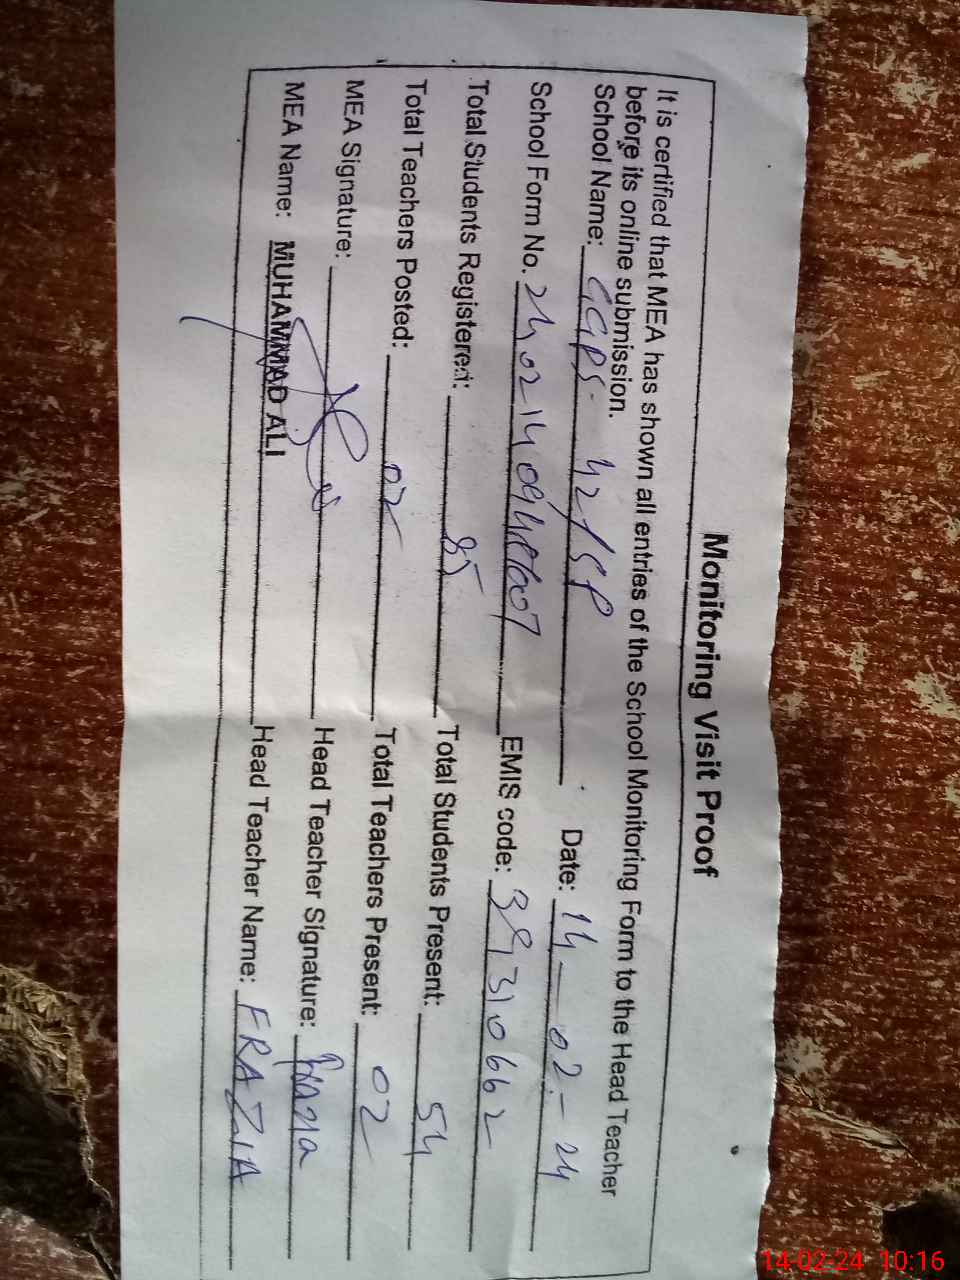 Monitoring Visit Proof
It is certified that MEA has shown all entries of the School Monitoring Form to the Head Teacher
before its online submission.
School Name: GGPS 42/SP Date: 14-02-24
School Form No. EMIS code: 39310662
Total Students Registered: 85 Total Students Present: 54
Total Teachers Posted: 02 Total Teachers Present: 02
MEA Signature: Head Teacher Signature:
MEA Name: MUHAMMAD ALI Head Teacher Name: FRAZIA
14-02-24 10:16